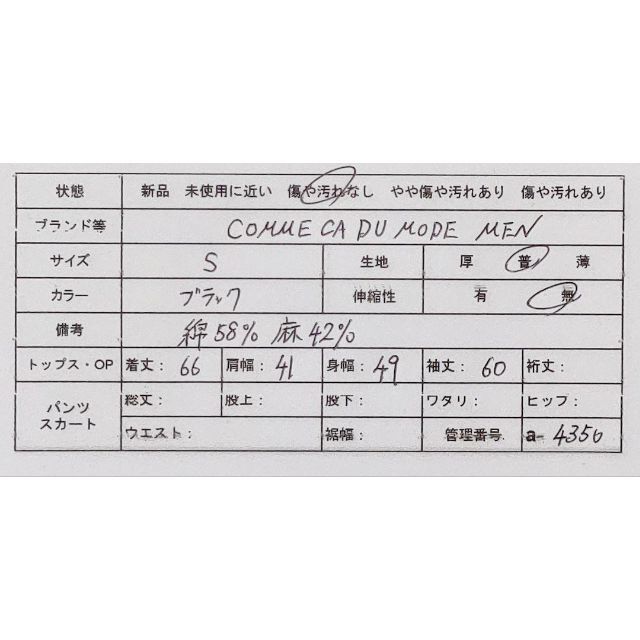 状態 新品 未使用に近い 傷や汚れなし やや傷や汚れあり 傷や汚れあり
ブランド等 COMME CA DU MODE MEN
サイズ S 生地 厚 普 薄
カラー ブラック 伸縮性 有 無
備考 綿58% 麻42%
トップス・OP 着丈: 66 肩幅: 41 身幅: 49 袖丈: 60 裄丈:
パンツ スカート 総丈: 股上: 股下: ワタリ: ヒップ:
ウエスト: 裾幅: 管理番号 a- 4356